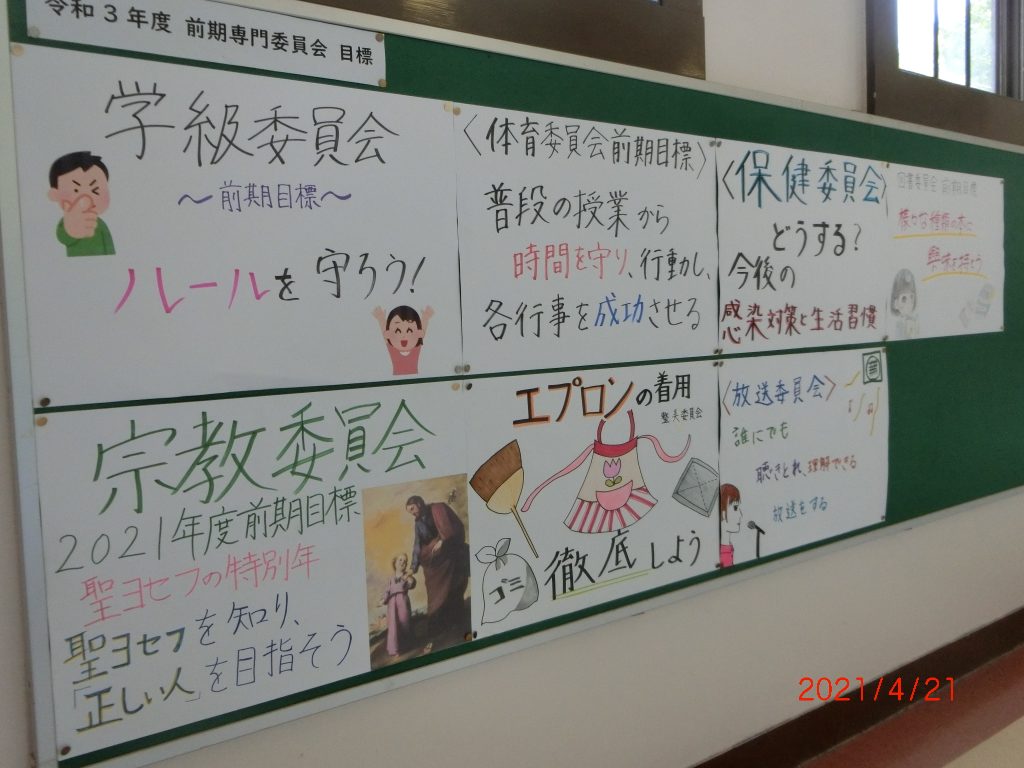 令和3年度 前期専門委員会 目標
学級委員会
～前期目標～
ルールを守ろう!
〈体育委員会前期目標〉
普段の授業から
時間を守り、行動し、
各行事を成功させる
〈保健委員会〉
どうする?
今後の
感染対策と生活習慣
図書委員会 前期目標
様々な種類の本に
興味を持とう
宗教委員会
2021年度前期目標
聖ヨセフの特別年
聖ヨセフを知り、
「正しい人」を目指そう
エプロンの着用
整美委員会
ゴミ
徹底しよう
〈放送委員会〉
誰にでも
聴きとれ、理解できる
放送をする
2021/4/21